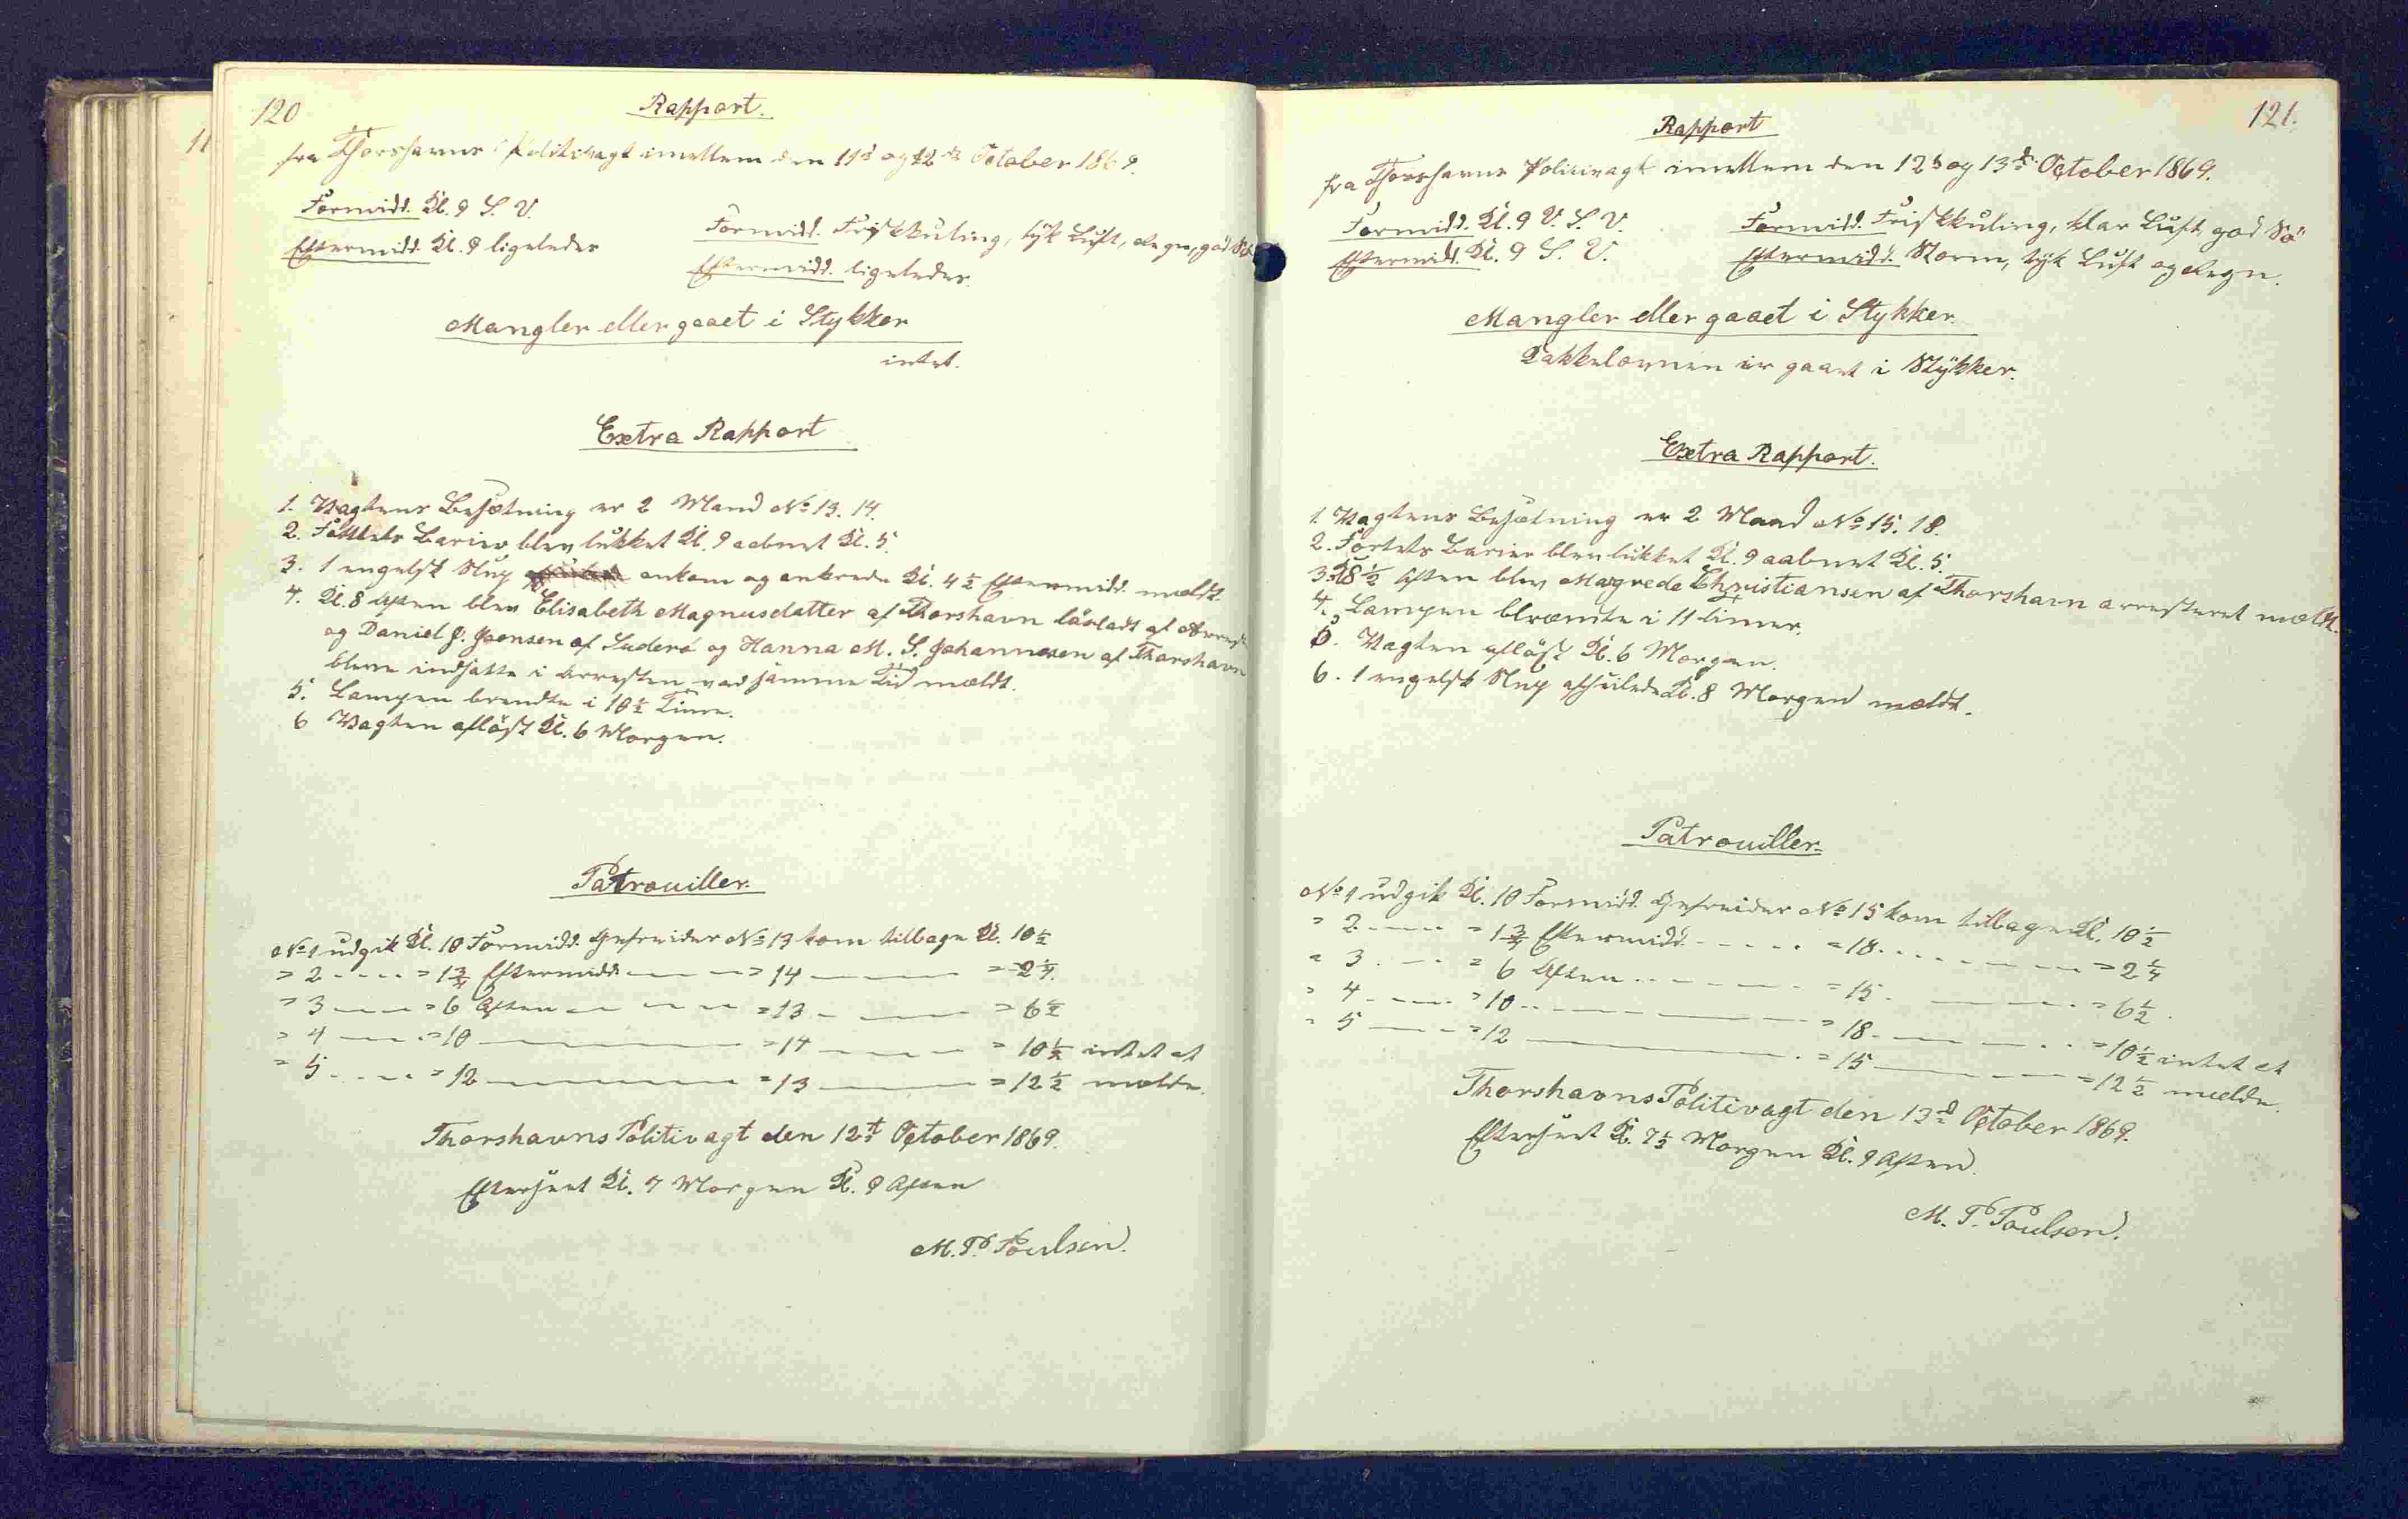 120
Rapport.
fra Thorshavns Politivagt imellem den 11te og 12te October 1869.
Formidd. Kl. 9 S. V.
Eftermidd. Kl. 9 ligeledes
Formidd. Friskkuling, tyk Luft, Regn, god Sö
Eftermidd. ligeledes.
Mangler eller gaaet i Stykker
intet.
Extra Rapport
1. Vagtens Besætning er 2 Mand No 13. 14.
2. Fortets Barier blev lukket Kl. 9 aabnet Kl. 5.
3. 1 engelsk Slup ankom og ankrede Kl. 4 1/2 Eftermidd. meldt.
4. Kl. 8 Aften blev Elisabeth Magnusdatter af Thorshavn lösladt af Arrest
og Daniel J. Joensen af Suderö og Hanna M. S. Johannesen af Thorshavn
bleve indsatte i Arresten ved samme Tid mældt.
5. Lampen brendte i 10 1/2 Time.
6 Vagten aflöst Kl. 6 Morgen.
Patrouiller.
No 1 udgik Kl. 10 Formidd. Gefreider No 13 kom tilbage Kl. 10 1/2
" 2 " 1 3/4 Eftermidd. " 14 " 2 1/4.
" 3 " 6 Aften " 13 " 6 1/2
" 4 " 10 " 14 " 10 1/2 intet at
" 5 " 12 " 13 " 12 1/2 melde.
Thorshavns Politivagt den 12t October 1869.
Efterseet Kl. 7 Morgen Kl. 9 Aften
M. P. Poulsen.
121.
Rapport
fra Thorshavns Politivagt imellem den 12t og 13d October 1869.
Formidd. Kl. 9 V. S. V.
Eftermidd. Kl. 9 S. V.
Formidd. Friskkuling, klar Luft god Sö
Eftermidd. Storm, tyk Luft og Regn.
Mangler eller gaaet i Stykker.
Kakkelovnen er gaaet i Stykker.
Extra Rapport.
1. Vagtens Besætning er 2 Mand No 15. 18.
2. Fortets Barier blev lukket Kl. 9 aabnet Kl. 5.
3. Kl 8 1/2 Aften blev Magrede Christiansen af Thorshavn arresteret mældt.
4. Lampen brændte i 11 Timer.
5. Vagten aflöst Kl. 6 Morgen.
6. 1 engelsk Slup afseilede Kl. 8 Morgen mældt.
Patrouiller.
No 1 udgik Kl. 10 Formidd. Gefreider No 15 kom tilbage Kl. 10 1/2
" 2 " 1 3/4 Eftermidd. " 18. " 2 1/4
" 3 " 6 Aften " 15. " 6 1/2.
" 4 " 10 " 18. " 10 1/2 intet at
" 5 " 12 " 15 " 12 1/2 melde.
Thorshavns Politivagt den 13d October 1869.
Efterseet Kl. 7 1/2 Morgen Kl. 9 Aften.
M. P. Poulsen.